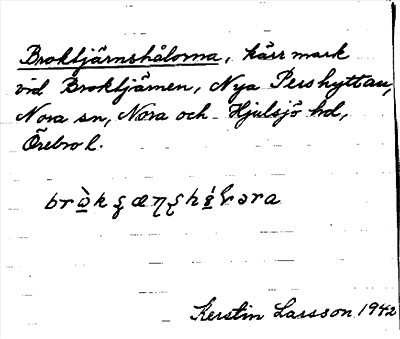 Broktjärnshålorna, kärrmark
vid Broktjärnen, Nya Pershyttan,
Nora sn, Nora och Hjulsjö hd,
Örebro l.
Kerstin Larsson 1942